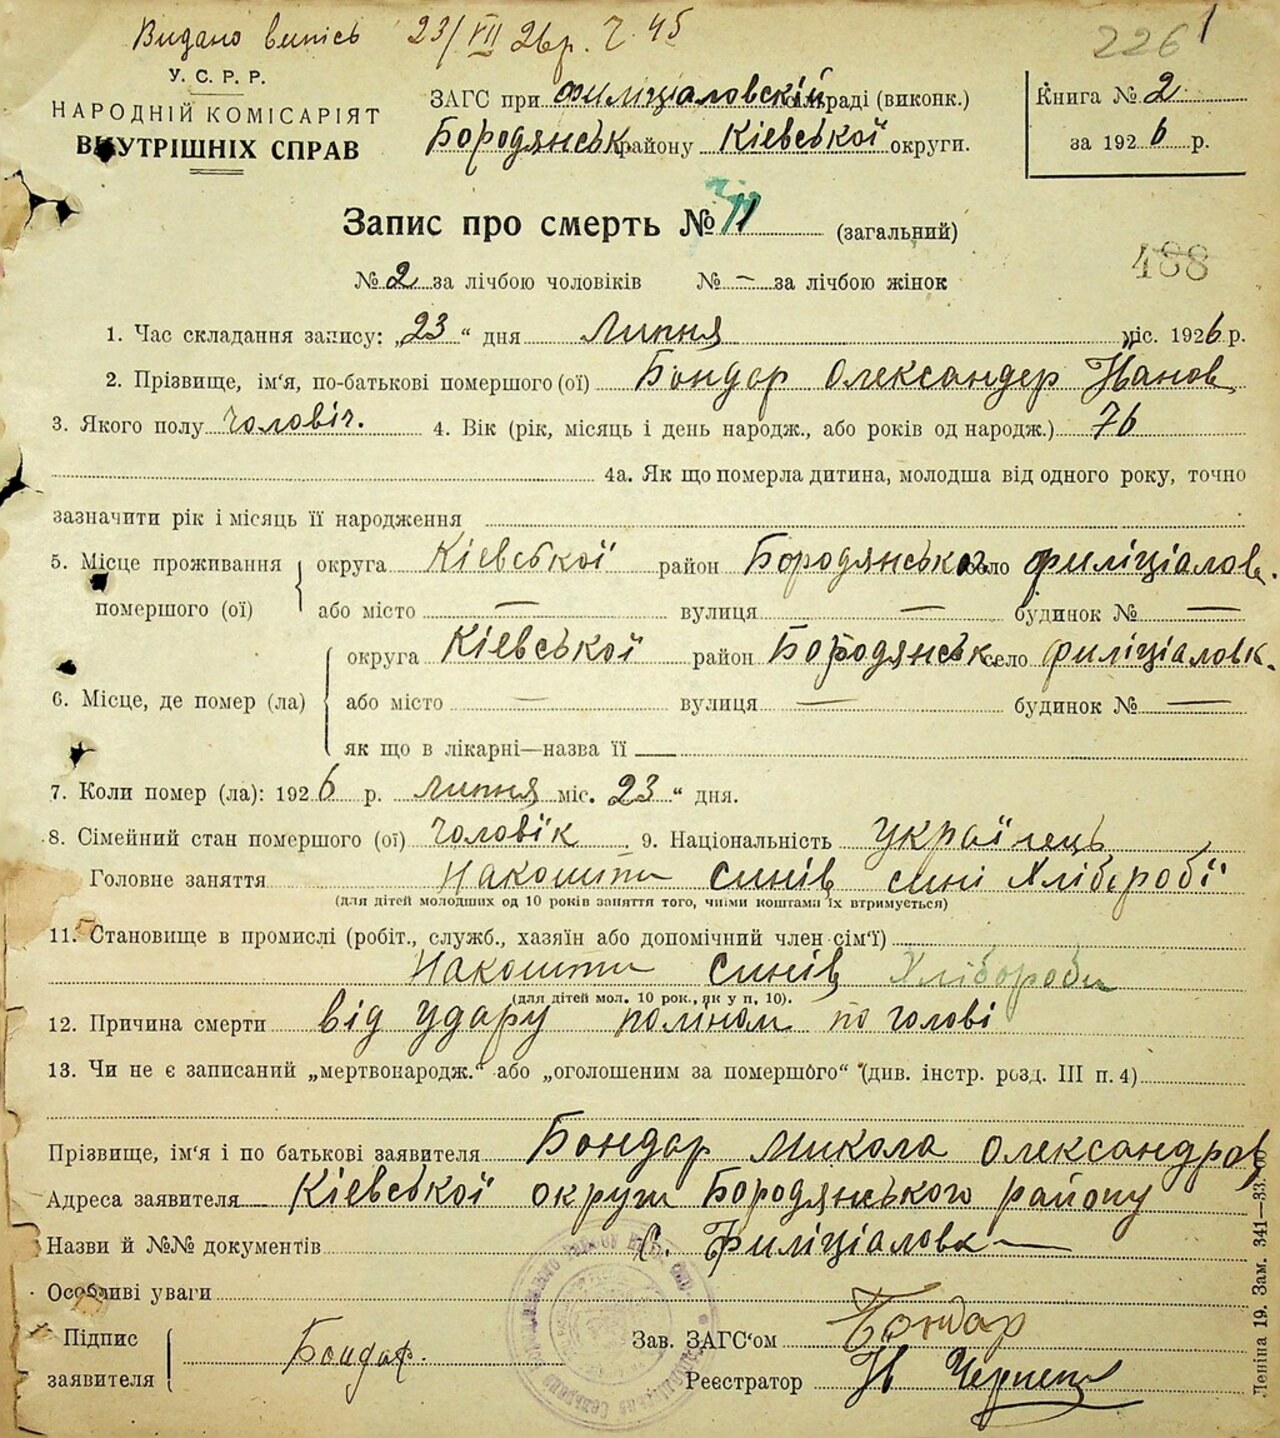 Видано випісь 23/VII 26р. Ч. 45
226 1
У. С. Р. Р.
НАРОДНІЙ КОМІСАРІЯТ
ВНУТРІШНІХ СПРАВ
ЗАГС при Филіціаловскій сільраді (виконк.)
Бородянськ району Кіевської округи.
Книга № 2
за 1926 р.
Запис про смерть № 11 (загальний)
488
№ 2 за лічбою чоловіків № — за лічбою жінок
1. Час складання запису: „23“ дня Липня міс. 1926 р.
2. Прізвище, ім'я, по-батькові помершого (ої) Бондар Олександер Йванов
3. Якого полу чоловіч. 4. Вік (рік, місяць і день народж., або років од народж.) 76
4а. Як що померла дитина, молодша від одного року, точно
зазначити рік і місяць її народження
5. Місце проживання помершого (ої) округа Кіевської район Бородянського село Филіціалов.
або місто — вулиця — будинок № —
6. Місце, де помер (ла) округа Кіевської район Бородянськ село Филіціаловк.
або місто — вулиця — будинок № —
як що в лікарні—назва її —
7. Коли помер (ла): 1926 р. липня міс. 23“ дня.
8. Сімейний стан помершого (ої) чоловік 9. Національність Україпець
Головне заняття Накошти синів сині Хлібороби
(для дітей молодших од 10 років заняття того, чиїми коштами їх втримується)
11. Становище в промислі (робіт., служб., хазяїн або допомічний член сім'ї)
Накошти синів Хлібороби
(для дітей мол. 10 рок., як у п. 10).
12. Причина смерти від удару поліном по голові
13. Чи не є записаний „мертвонародж.“ або „оголошеним за помершого“ (див. інстр. розд. III п. 4)
Прізвище, ім'я і по батькові заявителя Бондар Микола Олександров
Адреса заявителя Кіевської округи Бородянського району
Назви й №№ документів С. Филіціаловка —
Особливі уваги
Підпис заявителя Бондар.
Зав. ЗАГС'ом Бондар
Реєстратор
Леніна 19. Зам. 341—33.